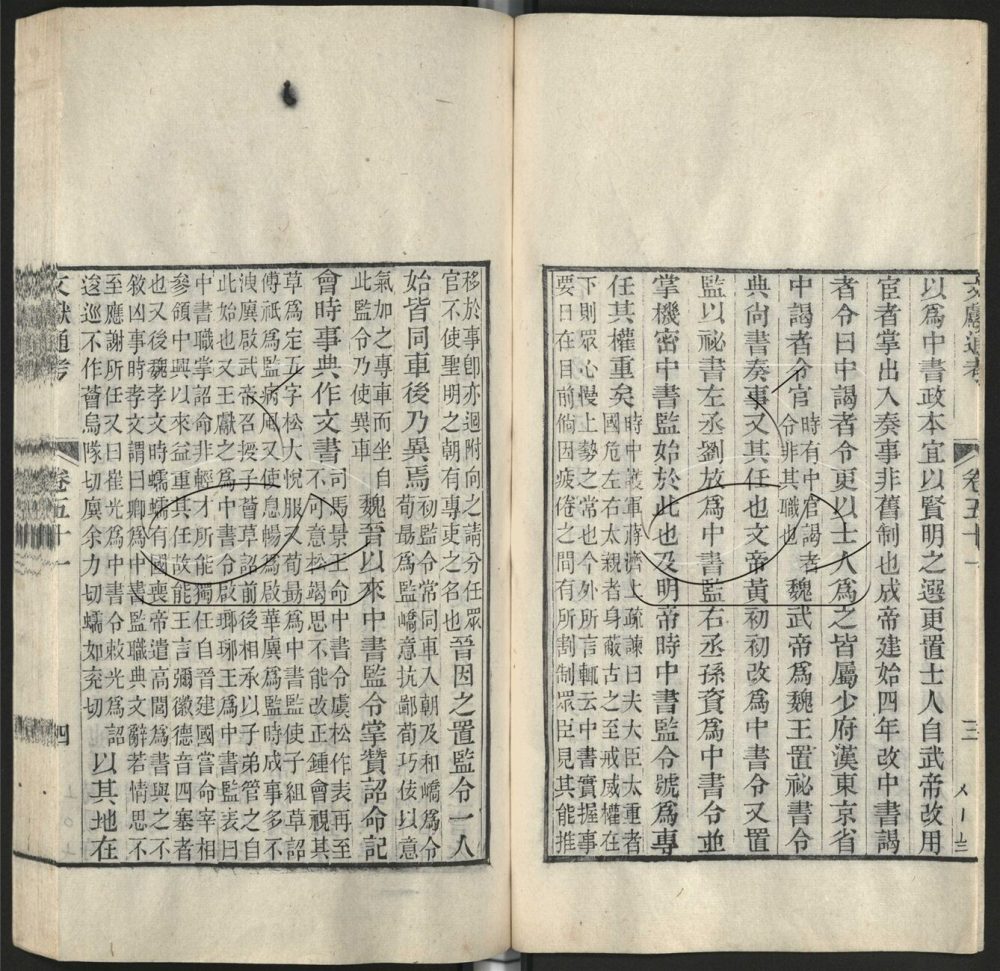 文獻通考　卷五十一　三
以爲中書政本宜以賢明之選更置士人自武帝改用
宦者掌出入奏事非舊制也成帝建始四年改中書謁
者令曰中謁者令更以士人爲之皆屬少府漢東京省
中謁者令官時有中官謁者令非其職也魏武帝爲魏王置祕書令
典尚書奏事又其任也文帝黃初初改爲中書令又置
監以祕書左丞劉放爲中書監右丞孫資爲中書令並
掌機密中書監始於此也及明帝時中書監令號爲專
任其權重矣時中護軍蔣濟上疏諫曰夫大臣太重者國危左右太親者身蔽古之至戒威權在
下則眾心慢上勢之常也今外所言輒云中書實握事
要日在目前倘因疲倦之間有所割制眾臣見其能推
移於事卽亦迴附向之請分任眾官不使聖明之朝有專吏之名也晉因之置監令一人
始皆同車後乃異焉初監令常同車入朝及和嶠爲令荀最爲監嶠意抗鄙荀巧佞以意
氣加之專車而坐自此監令乃使異車魏晉以來中書監令掌贊詔命記
會時事典作文書司馬景王命中書令虞松作表再至不可意松竭思不能改正鍾會視其
草爲定五字松大悅服又荀最爲中書監使子組草詔
傅祗爲監病風又使息暢爲啟華廙爲監時戎事多不
洩廙啟武帝召授子薈草詔前後相承以子弟管之自
此始也又王獻之爲中書令啟瑯琊王爲中書監表曰
中書職掌詔命非輕才所能獨任自晉建國嘗命宰相
參領中興以來益重其任故能王言彌徽德音四塞者
也又後魏孝文時蠕蠕有國喪帝遣高閭爲書與之不
敘凶事時孝文謂曰卿爲中書監職典文辭若情思不
至應謝所任又曰崔光爲中書令敕光爲詔逡巡不作薈烏隊切廙余力切蠕如兗切以其地在
文獻通考　卷五十一　四